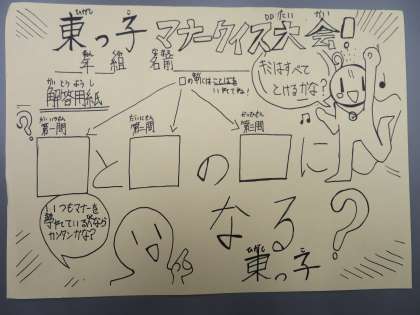 ひがし こ たい かい
東っ子 マナークイズ大会!
年 組 名前
□の中にことばを
いれてね!
キミはすべて
とけるかな?
かいとうようし
解答用紙
だいいちもん だいにもん だいさんもん
第一問 第二問 第三問
□と□の□に
なる?
ひがし こ
東っ子
いつもマナーを
守っている君なら
カンタンかな?